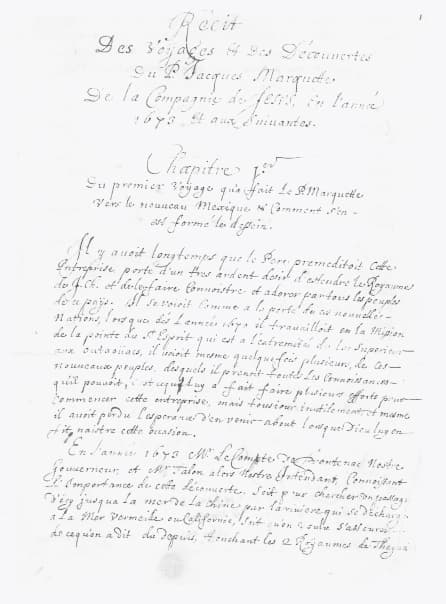 1
Récit
Des Voyages et des Découvertes
Du P. Jacques Marquette
De la Compagnie de Jesus, en l'année
1673 Et aux Suivantes.
Chapitre 1er
Du premier Voyage qu'a fait Le P. Marquette
vers le nouveau Mexique & Comment s'en
est formé le dessein.
Il y avoit longtemps que le Pere premeditoit Cette
Entreprise porté d'un tres ardent desir d'estendre le Royaume
de J. Ch. et de le faire Connoistre et adorer par tous les peuples
de ce pays. Il se voioit Comme a la porte de ces nouvelles
Nations, lorsque dés L'année 1670 il travailloit en la Mission
de la pointe du St Esprit qui est a l'extremité du lac Superieur
aux outaouacs, il voioit mesme quelquefois plusieurs de ces
nouveaux peuples, desquels il prenoit toutes Les Connoissances
qu'il pouvoit, c'est ce qui Luy a fait faire plusieurs efforts pour
commencer cette entreprise, mais tousiour inutilement, et mesme
il avoit perdu l'esperance d'en venir about lorsque Dieu luy en
fit naistre cette occasion.
En L'année 1673 Mr. Le Comte De Frontenac Nostre
Gouverneur, et Mr Talon alors Nostre Intendant, Connoissant
L'importance de cette découverte, soit pour chercher un passage
d'icy jusqua la mer de la Chine par la riviere qui se décharge
a La Mer Vermeille ou Californie, soit qu'on voulu s'asseurer
de ce qu'on a dit du depuis, touchant les 2 Royaumes de Theguaio